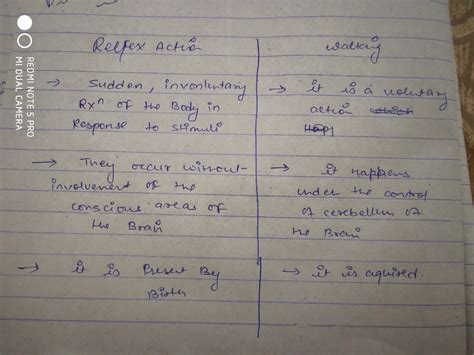 Relfex Action
→ Sudden, involuntary
Rxⁿ of the Body in
Response to stimuli
→ They occur without
involvement of the
conscious areas of
the Brain
→ it is Present By
Birth
walking
→ it is a voluntary
action
→ it happens
under the control
of cerebellum of
the Brain
→ it is aquired.
REDMI NOTE 5 PRO
MI DUAL CAMERA